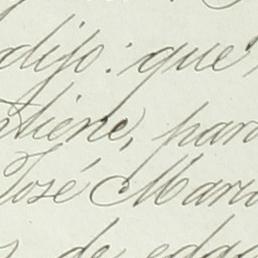 dijo: que
tiene, para
José María
de edad